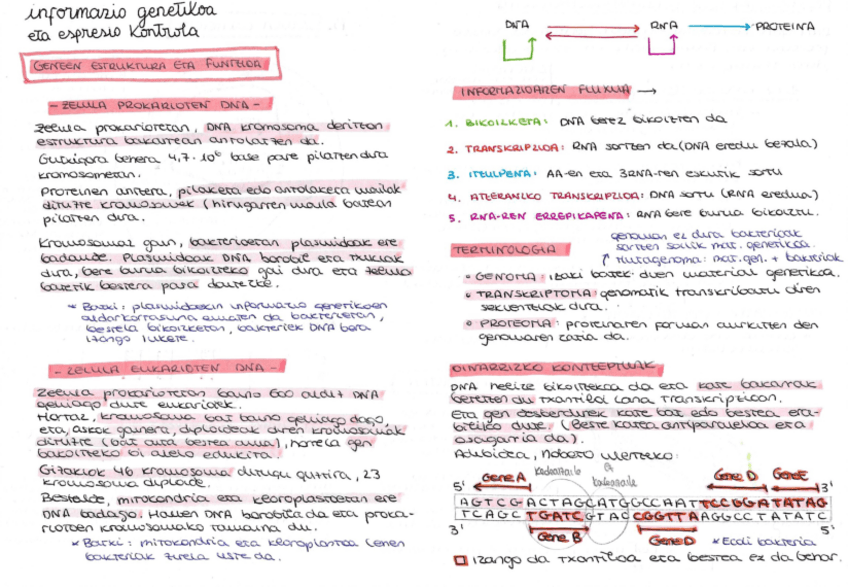 informazio genetikoa
eta espresio kontrola
GENEEN ESTRUKTURA ETA FUNTZIOA
- ZELULA PROKARIOTEN DNA -
Zelula prokariotetan, DNA kromosoma deritzon
estruktura bakarrean antolatzen da.
Gutxigora behera 4,7·10⁶ base pare pilatzen dira
kromosometan.
Proteinen arabera, pilaketa edo antolaketa mailak
dituzte kromosomek (hirugarren maila batean
pilatzen dira.
Kromosomaz gain, bakterioetan plasmidoak ere
badaude. Plasmidoak DNA borobil eta txikiak
dira, bere burua bikoizteko gai dira eta zelula
batetik bestera pasa daitezke.
* Bariki: plasmidoetan informazio genetikoen
aldakortasuna ematen da bakterietan,
bestela bikoizketan, bakteriek DNA bera
izango lukete.
- ZELULA EUKARIOTEN DNA -
Zelula prokarioteran baino 600 aldiz DNA
gehiago dute eukariotek.
Hortaz, kromosoma bat baino gehiago dago,
eta, askok gainera, diploideak diren kromosomak
dituzte (bat aita bestea ama), horrela gen
bakoitzeko bi alelo edukiz.
Gizakiok 46 kromosoma ditugu guztira, 23
kromosoma diploide.
Bestalde, mitokondria eta kloroplastoetan ere
DNA badago. Hauen DNA borobila da eta proka-
rioten kromosomako tamaina du.
* Bariki: mitokondria eta kloroplastoa lehen
bakteriak zirela uste da.
DNA RNA PROTEINA
INFORMAZIOAREN FLUXUA →
1. BIKOIZKETA: DNA berez bikoizten da
2. TRANSKRIPZIOA: RNA sortzen da (DNA eredu bezala)
3. ITZULPENA: AA-en eta 3RNA-ren eskutik sortu
4. ATZERANZKO TRANSKRIPZIOA: DNA sortu (RNA eredua)
5. RNA-REN ERREPIKAPENA: RNA bere burua bikoiztu.
genoman ez dira bakteriak
sartzen soilik mat. genetikoa.
TERMINOLOGIA
↗ Mutagenoma: mat.gen. + bakteriak
• GENOMA: izaki batek duen material genetikoa.
• TRANSKRIPTOMA: genomatik transkribatu diren
sekuentziak dira.
• PROTEOMA: proteinaren forman aurkitzen den
genomaren zatia da.
OINARRIZKO KONTZEPTUAK
DNA helize bikoitzekoa da eta kate bakarrak
beretzen du txantiloi lana transkripzioan.
Eta gen desberdinek kate bat edo bestea era-
biliko dute. (Beste katea antiparaleloa eta
osagarria da).
Adibidea, hobeto ulertzeko:
Gene A Gene D Gene E
5' AGTCGACTAGCATGGCCAATTCCGGATATAG 3'
3' TCAGCTGATCGTACCGGTTAAGGCCTATATC 5'
Gene B Gene D * Ecoli bakteria
□ Izango da txantiloia eta bestea ez da behar.